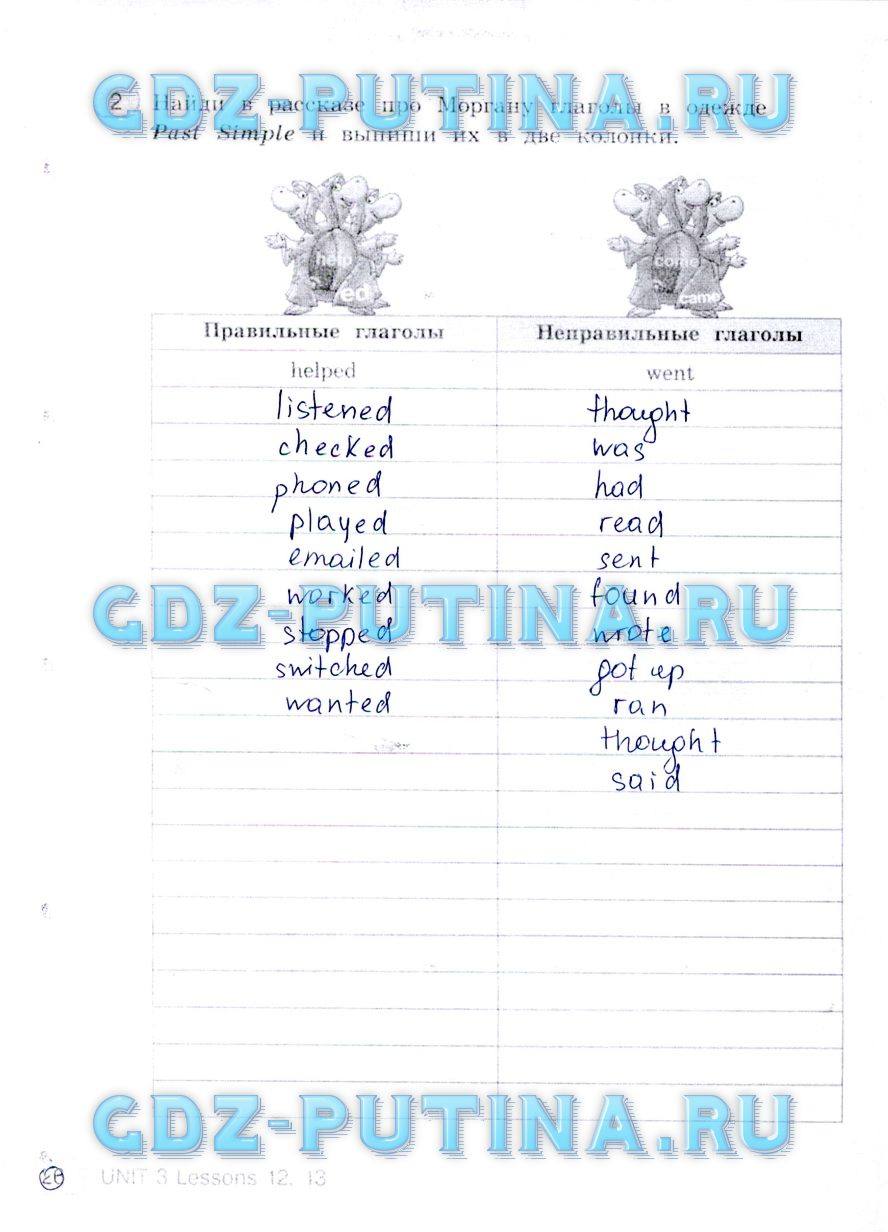 GDZ-PUTINA.RU
2 Найди в рассказе про Моргану глаголы в одежде
Past Simple и выпиши их в две колонки.
help
ed
come
came
Правильные глаголы Неправильные глаголы
helped went
listened thought
checked was
phoned had
played read
emailed sent
GDZ-PUTINA.RU
worked found
stopped wrote
switched got up
wanted ran
thought
said
GDZ-PUTINA.RU
26 UNIT 3 Lessons 12, 13